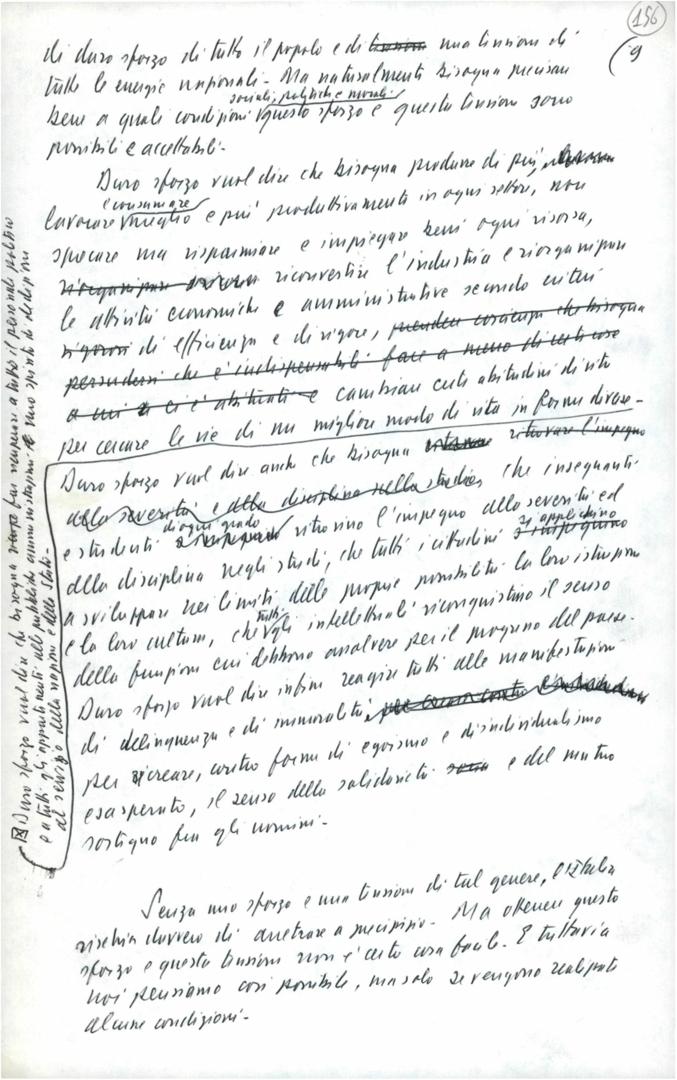 156
9
di duro sforzo di tutto il popolo e di tensione una tensione di
tutte le energie nazionali. Ma naturalmente bisogna precisare
sociali, politiche e morali
bene a quali condizioni questo sforzo e questa tensione sono
possibili e accettabili.
Duro sforzo vuol dire che bisogna produrre di più,
e consumare
lavorare meglio e più produttivamente in ogni settore, non
sprecare ma risparmiare e impiegare bene ogni risorsa,
riorganizzare riconvertire l'industria e riorganizzare
le attività economiche e amministrative secondo criteri
rigorosi di efficienza e di rigore, prendere coscienza che bisogna
persuadersi che è indispensabile fare a meno di certe cose
a cui ci è abituati e cambiare certe abitudini di vita
per cercare le vie di un migliore modo di vita in forme diverse.
Duro sforzo vuol dire anche che bisogna ritrovare l'impegno
alla severità e alla disciplina nello studio, che insegnanti
di ogni grado
e studenti ritrovino l'impegno alla severità ed
si applichino
alla disciplina negli studi, che tutti i cittadini si impegnino
a sviluppare nei limiti delle proprie possibilità la loro istruzione
tutti
e la loro cultura, che gli intellettuali riconquistino il senso
della funzione cui debbono assolvere per il progresso del paese.
Duro sforzo vuol dire infine reagire tutti alle manifestazioni
di delinquenza e di immoralità,
per ricreare, contro forme di egoismo e di individualismo
esasperato, il senso della solidarietà e del mutuo
sostegno fra gli uomini.
Duro sforzo vuol dire che bisogna far rinascere a tutto il personale politico
e a tutti gli appartenenti alle pubbliche amministrazioni uno spirito di dedizione
al servizio della nazione e dello Stato.
Senza uno sforzo e una tensione di tal genere, l'Italia
rischia davvero di arretrare a precipizio. Ma ottenere questo
sforzo e questa tensione non è certo cosa facile. E tuttavia
noi pensiamo cosa possibile, ma solo se vengono realizzate
alcune condizioni.